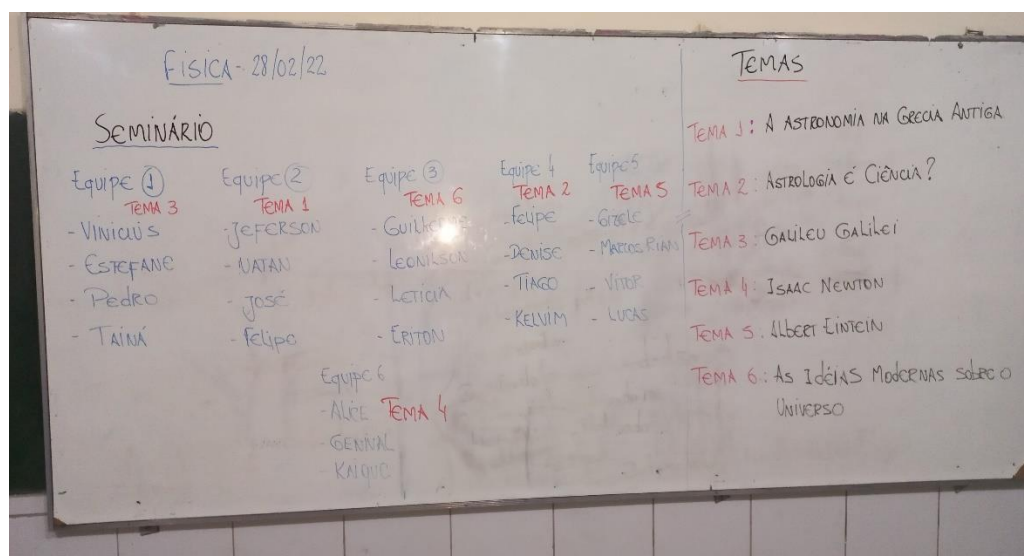 FISICA - 28/02/22
SEMINÁRIO
Equipe 1
TEMA 3
- VINICIUS
- ESTEFANE
- PEDRO
- TAINÁ
Equipe 2
TEMA 1
- JEFERSON
- NATAN
- JOSÉ
- Felipe
Equipe 3
TEMA 6
- GUILHERME
- LEONILSON
- LETICIA
- ERITON
Equipe 4
TEMA 2
- Felipe
- DENISE
- TIAGO
- KELVIM
Equipe 5
TEMA 5
- GIZELE
- MARCOS RIAN
- VITOR
- LUCAS
Equipe 6
- ALICE TEMA 4
- GENIVAL
- KAIQUE
TEMAS
TEMA 1: A ASTRONOMIA NA GRECIA ANTIGA
TEMA 2: ASTROLOGIA É CIÊNCIA?
TEMA 3: GALILEU GALILEI
TEMA 4: ISAAC NEWTON
TEMA 5: ALBERT EINTEIN
TEMA 6: AS IDÉIAS MODERNAS SOBRE O
UNIVERSO